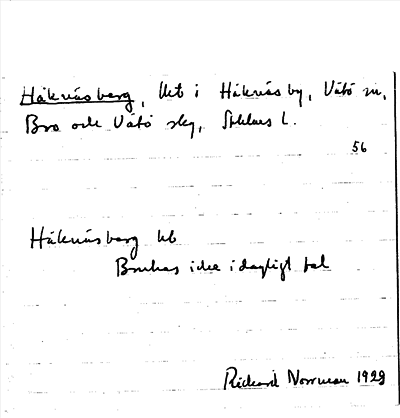 Håknäsberg, lht i Håknäsby, Vätö sn,
Bro och Vätö skg, Sthlms l.
56
Håknäsberg lkb
Brukas icke i dagligt tal
Rickard Norrman 1928